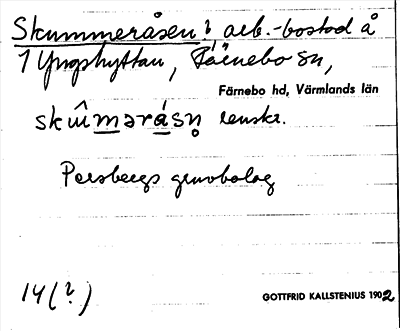 Skummeråsen ? arb.-bostad å
1 Yngshyttan, Färnebo sn,
Färnebo hd, Värmlands län
skûmərásn̥ renskr.
Persbergs gruvbolag
14(?)
GOTTFRID KALLSTENIUS 1902